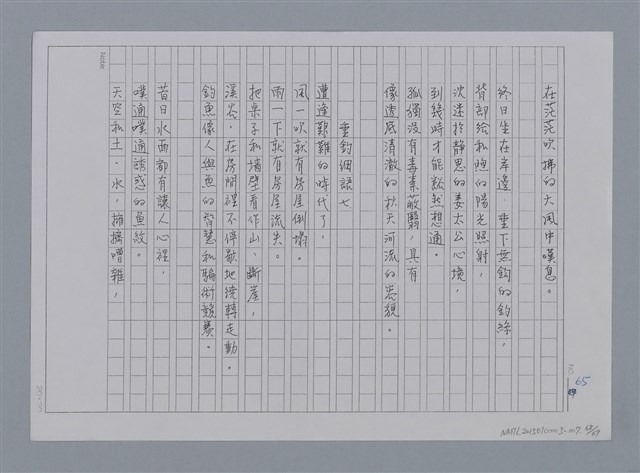 在茫茫吹拂的大風中嘆息。
終日坐在岸邊,垂下無鈎的釣絲,
背部給和煦的陽光照射,
沈迷於靜思的姜太公心境,
到幾時才能豁然想通。
孤獨沒有毒素蔽翳,具有
像透底清澈的秋天河流的容貌。
垂釣細語七
遭逢艱難的時代了,
風一吹就有房屋倒塌。
雨一下就有房屋流失。
把桌子和牆壁看作山、斷崖,
溪谷,在房間裡不停歇地繞轉走動。
釣魚像人與魚的智慧和騙術競賽。
昔日水面都有讓人心裡,
噗通噗通誘惑的魚紋。
天空和土、水,擁擠嘈雜,
Note
65